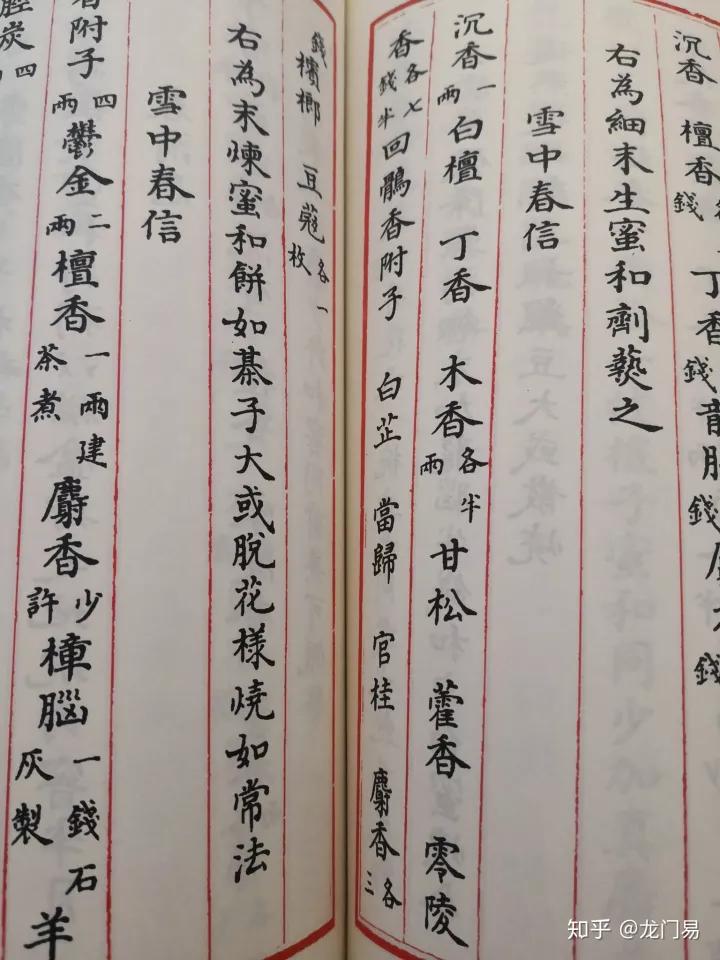 沉香 檀香 錢 丁香 錢 龍 錢 錢
右為細末生蜜和劑爇之
雪中春信
沉香一兩 白檀 丁香 木香各半兩 甘松 藿香 零陵
香各七錢半 回鶻香附子 白芷 當歸 官桂 麝香各三
錢 檳榔 豆蔻各一枚
右為末煉蜜和餅如棊子大或脫花樣燒如常法
雪中春信
香附子四兩 鬱金二兩 檀香一兩建茶煮 麝香少許 樟腦一錢石灰製 羊
脛炭四
知乎 @龙门易